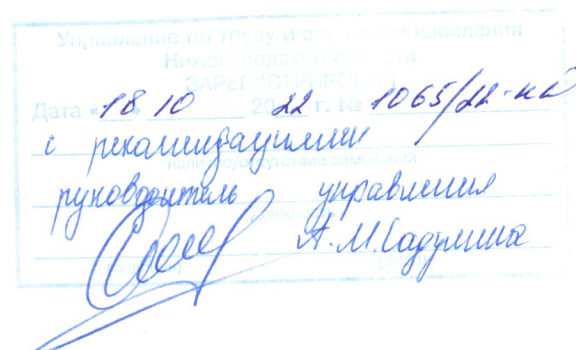 Управление по труду и занятости населения
Нижегородской области
ЗАРЕГИСТРИРОВАНО
Дата «18» 10 2022 г. № 1065/22-кд
с рекомендациями
наличие/отсутствие замечаний
руководитель управления
(должность)
А.М.Садулина